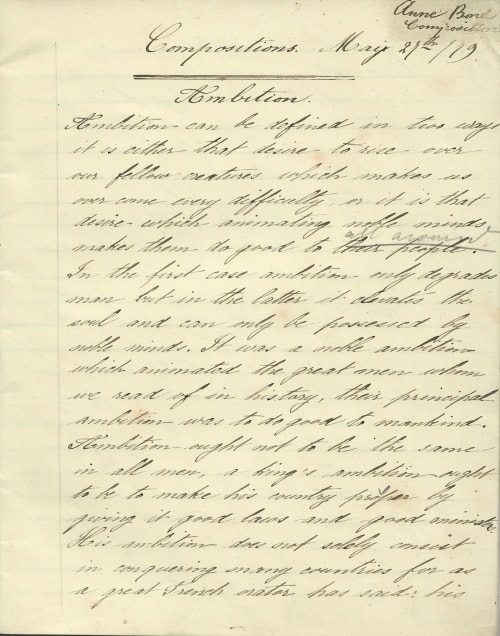 Anne Bond
Composition
Compositions. May 29th/79
Ambition.
Ambition can be defined in two ways
it is either that desire to rise over
our fellow creatures which makes us
over come every difficulty or it is that
desire which animating noble minds,
all around.
makes them do good to their people.
In the first case ambition only degrades
man but in the latter it elevates the
soul and can only be possessed by
noble minds. It was a noble ambition
which animated the great men whom
we read of in history, their principal
ambition was to do good to mankind.
Ambition ought not to be the same
in all men, a king's ambition ought
to be to make his country prosper by
giving it good laws and good ministers.
His ambition does not solely consist
in conquering many countries for as
a great French orator has said: his